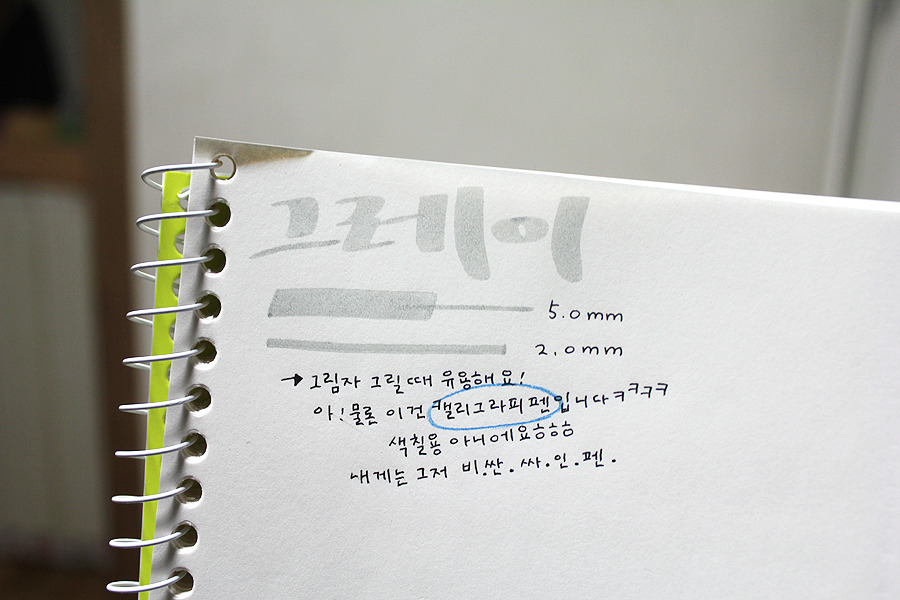 그레이
5.0mm
2.0mm
→ 그림자 그릴 때 유용해요!
아! 물론 이건 캘리그라피펜입니다ㅋㅋㅋㅋ
색칠용 아니에요ㅎㅎㅎ
내게는 그저 비.싼.싸.인.펜.